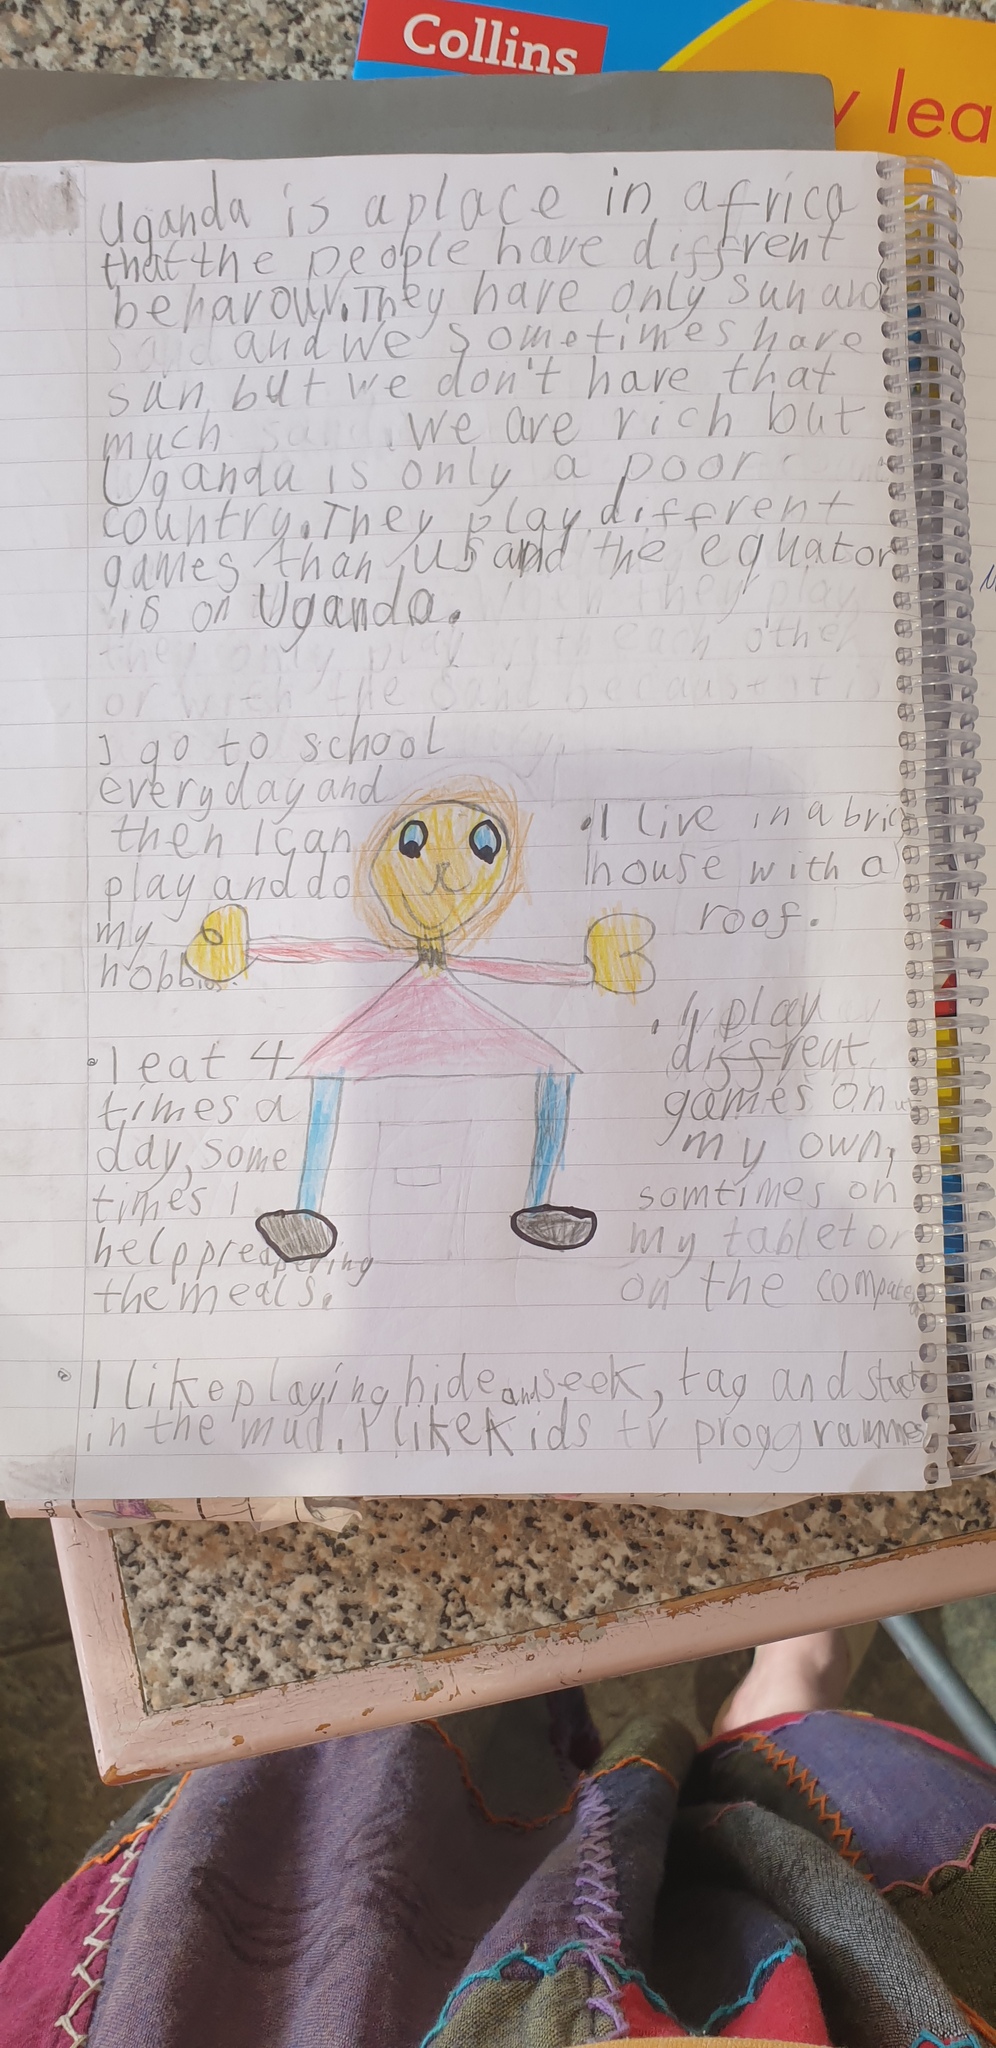 Collins
lea
Uganda is a place in africa
that the people have diffrent
behavour. They have only sun and
sand and we sometimes have
sun, but we don't have that
much sand. we are rich but
Uganda is only a poor
country. They play different
games than us and the equator
is on Uganda. When they play
they only play with each other
or with the sand because it is
I go to school
everyday and
then I can
play and do
my
hobbies.
• I live in a brick
house with a
roof.
• I eat 4
times a
day, some
times I
help preapering
the meals.
• I play
diffrent
games on
my own,
somtimes on
my tablet or
on the computer
• I like playing hide and seek, tag and stuck
in the mud. I like kids tv proggrammes